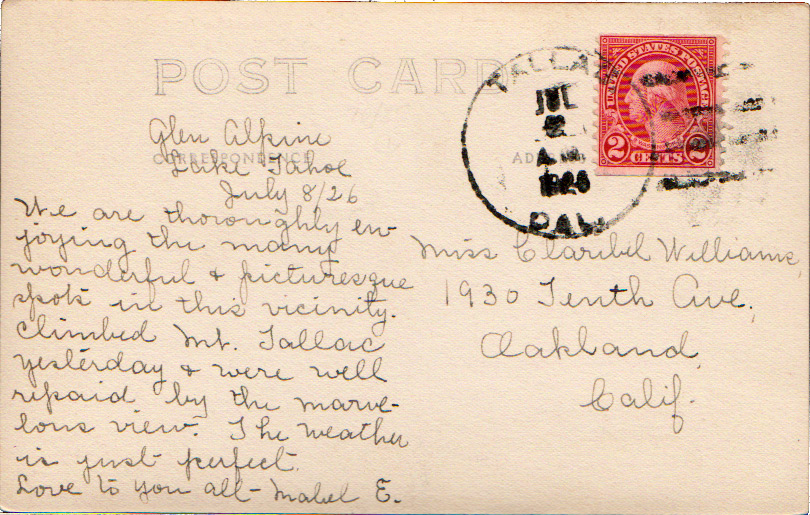 POST CARD
CORRESPONDENCE
Glen Alpine
Lake Tahoe
July 8/26
We are thoroughly en-
joying the many
wonderful & picturesque
spots in this vicinity.
Climbed Mt. Tallac
yesterday & were well
repaid by the marve-
lous view. The weather
is just perfect.
Love to you all - Mabel E.
TALLAC
JUL
A.M.
1926
CAL.
UNITED STATES POSTAGE
2 CENTS 2
Miss Claribel Williams
1930 Tenth Ave.
Oakland
Calif.